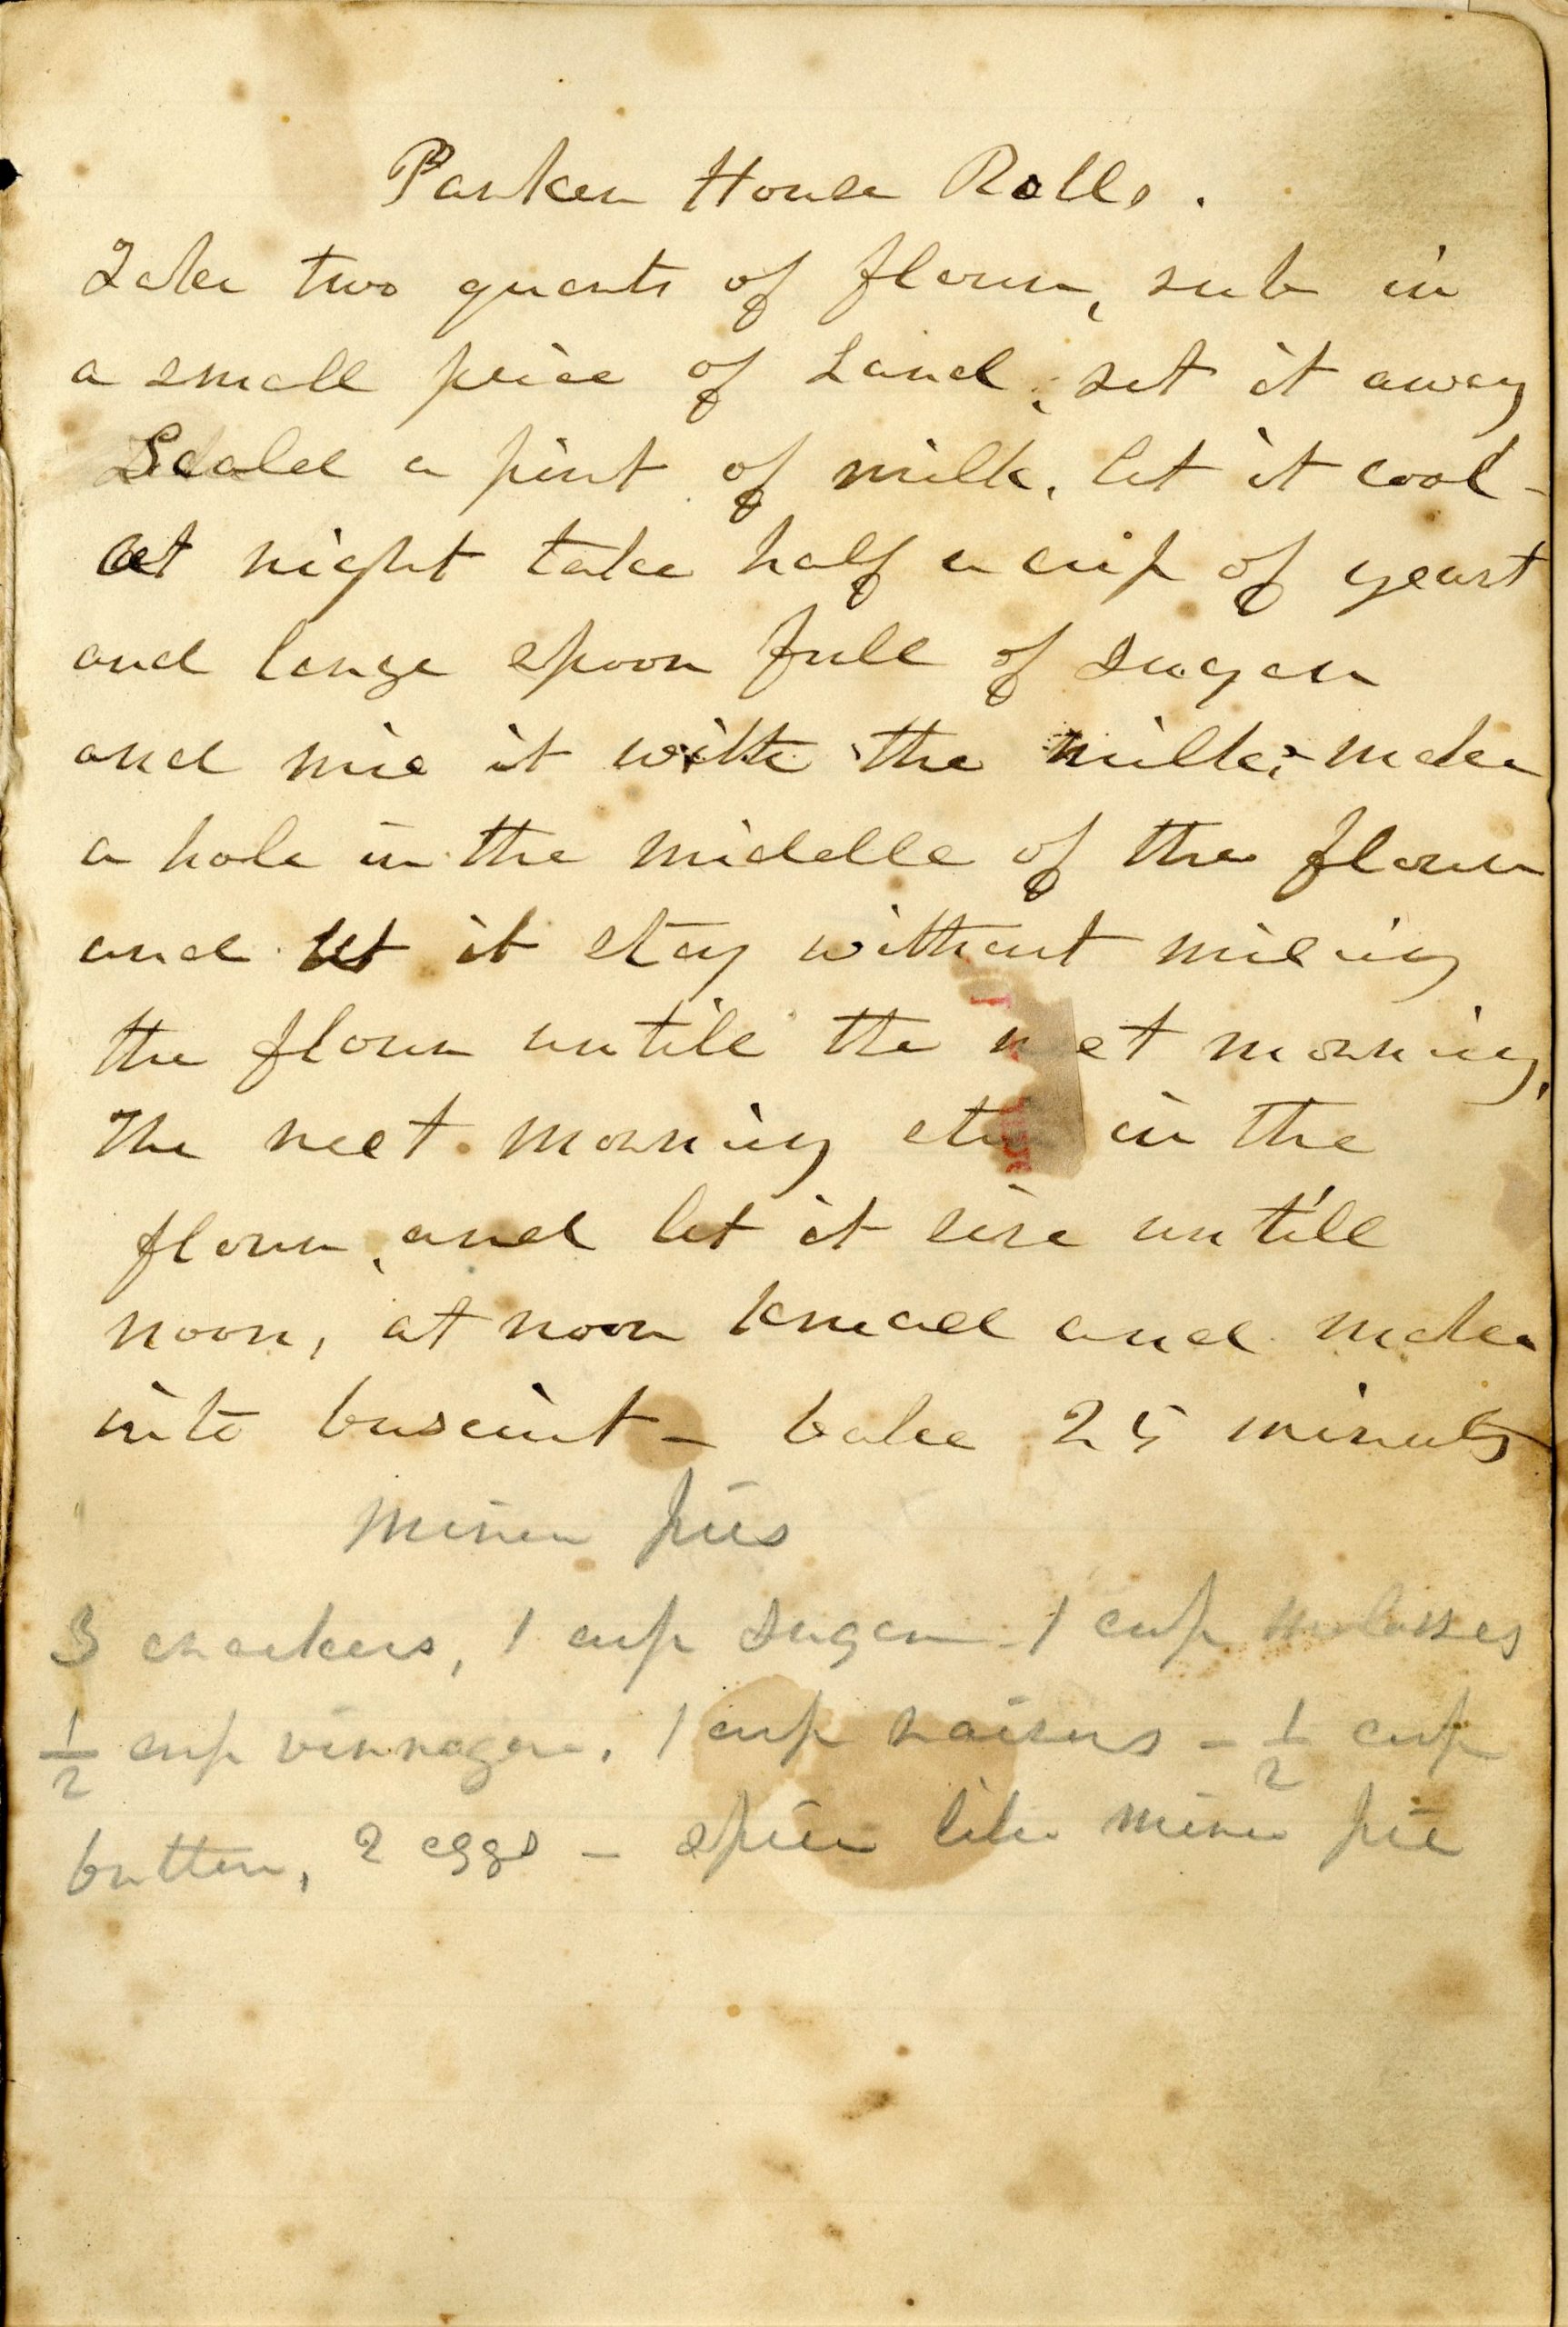 Parker House Rolls.
Take two quarts of flour, rub in
a small peice of Lard, set it away
Scald a pint of milk, let it cool -
at night take half a cup of yeast
and large spoon full of sugar
and mix it with the milk, - make
a hole in the middle of the flour
and let it stay without mixing
the flour untill the next morning,
The next morning stir in the
flour, and let it rise untill
noon, at noon knead and make
into buscuit - bake 25 minuts
Mince pies
3 crackers, 1 cup sugar - 1 cup molasses
1/2 cup vinnagar, 1 cup raisins - 1/2 cup
butter, 2 eggs - spice like mince pie